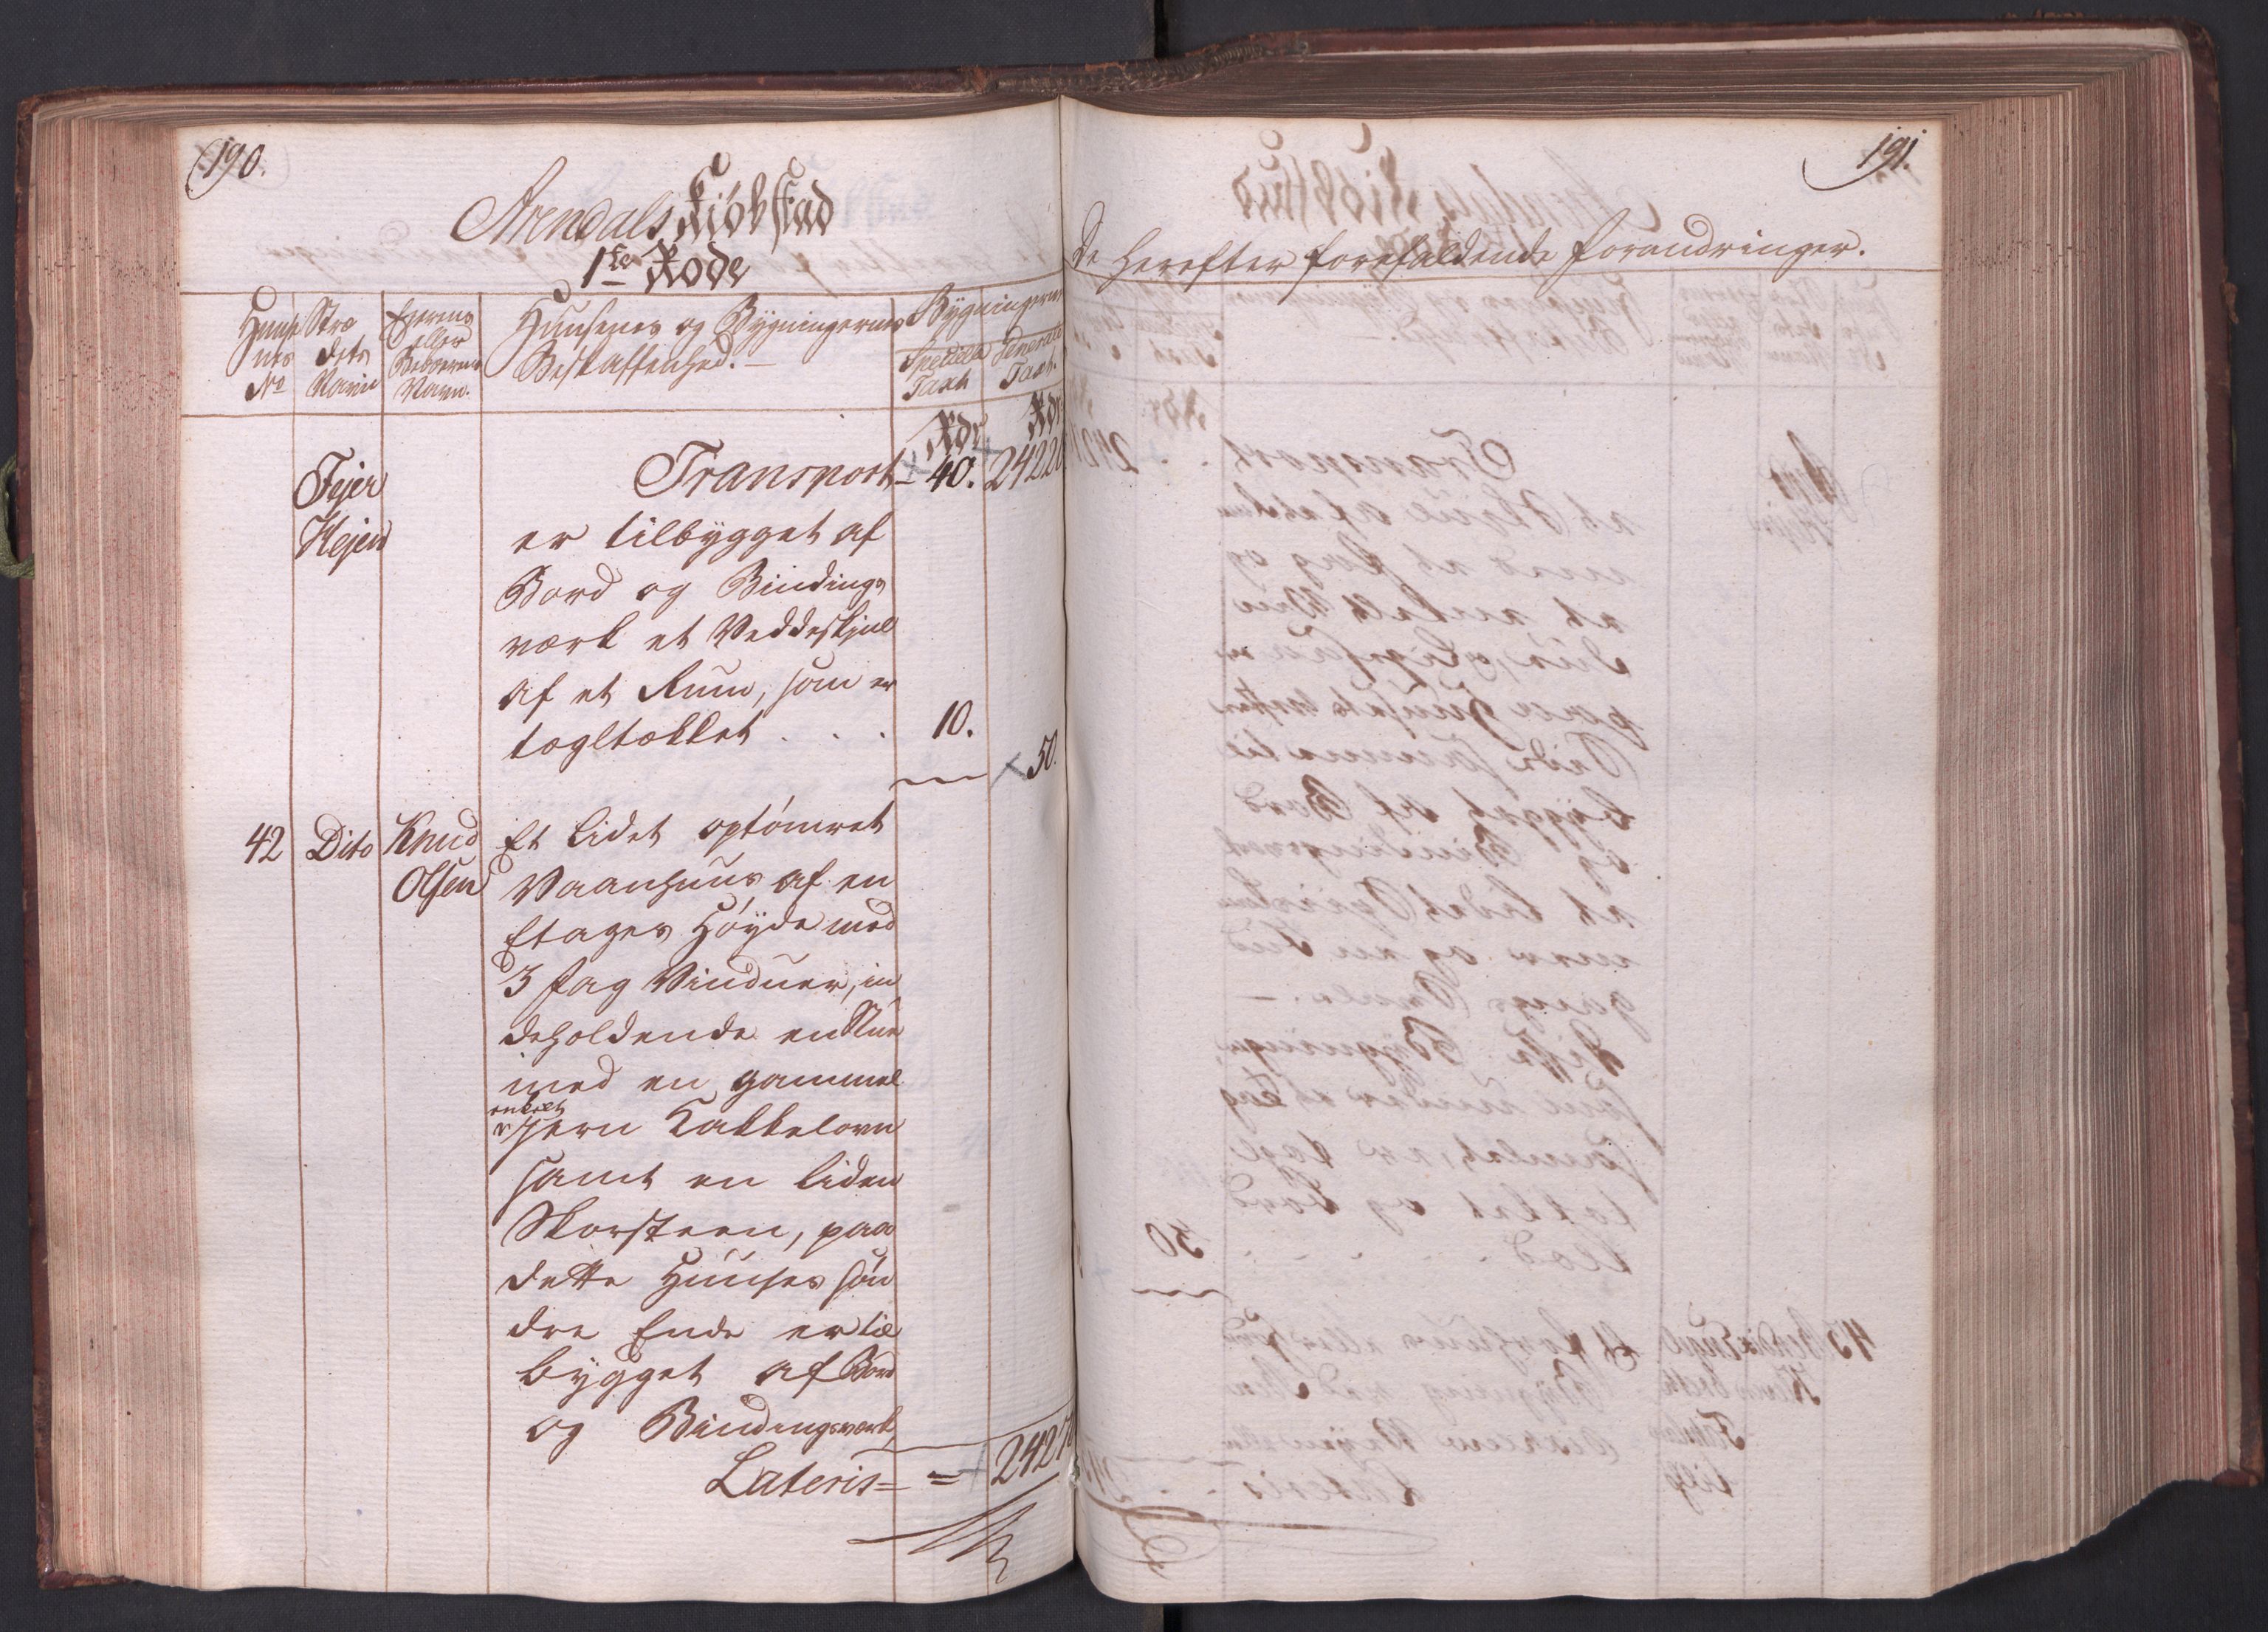 190.
Arendals Kiöbstad
1ste Rode
Huuse
nes
No
Stræ
dets
Navne
Eyerens
eller
Beboerens
Navn.
Huusenes og Bygningernes
Beskaffenhed. —
Bygningernes
Specielle
Taxt
Generale
Taxt.
Rdr
Rdr
Fejer
Hejen
Transport = 40.
er tilbygget af
Bord og Bindings
værk et Veddeskjul
af et Rum, som er
tegltækket . . . 10.
50.
42 Dito Knud
Olsen
Et lidet optömret
Vaanhuus af en
Etages Höyde med
3 fag Vinduer, in
deholdende en Stue
med en gammel
enkelt
Jern Kakkelovn
samt en liden
Skorsteen, paa
dette Huuses sön
dre Ende er til
bygget af Bord
og Bindingsværk,
Lateris =
191.
De herefter forefaldende forandringer.